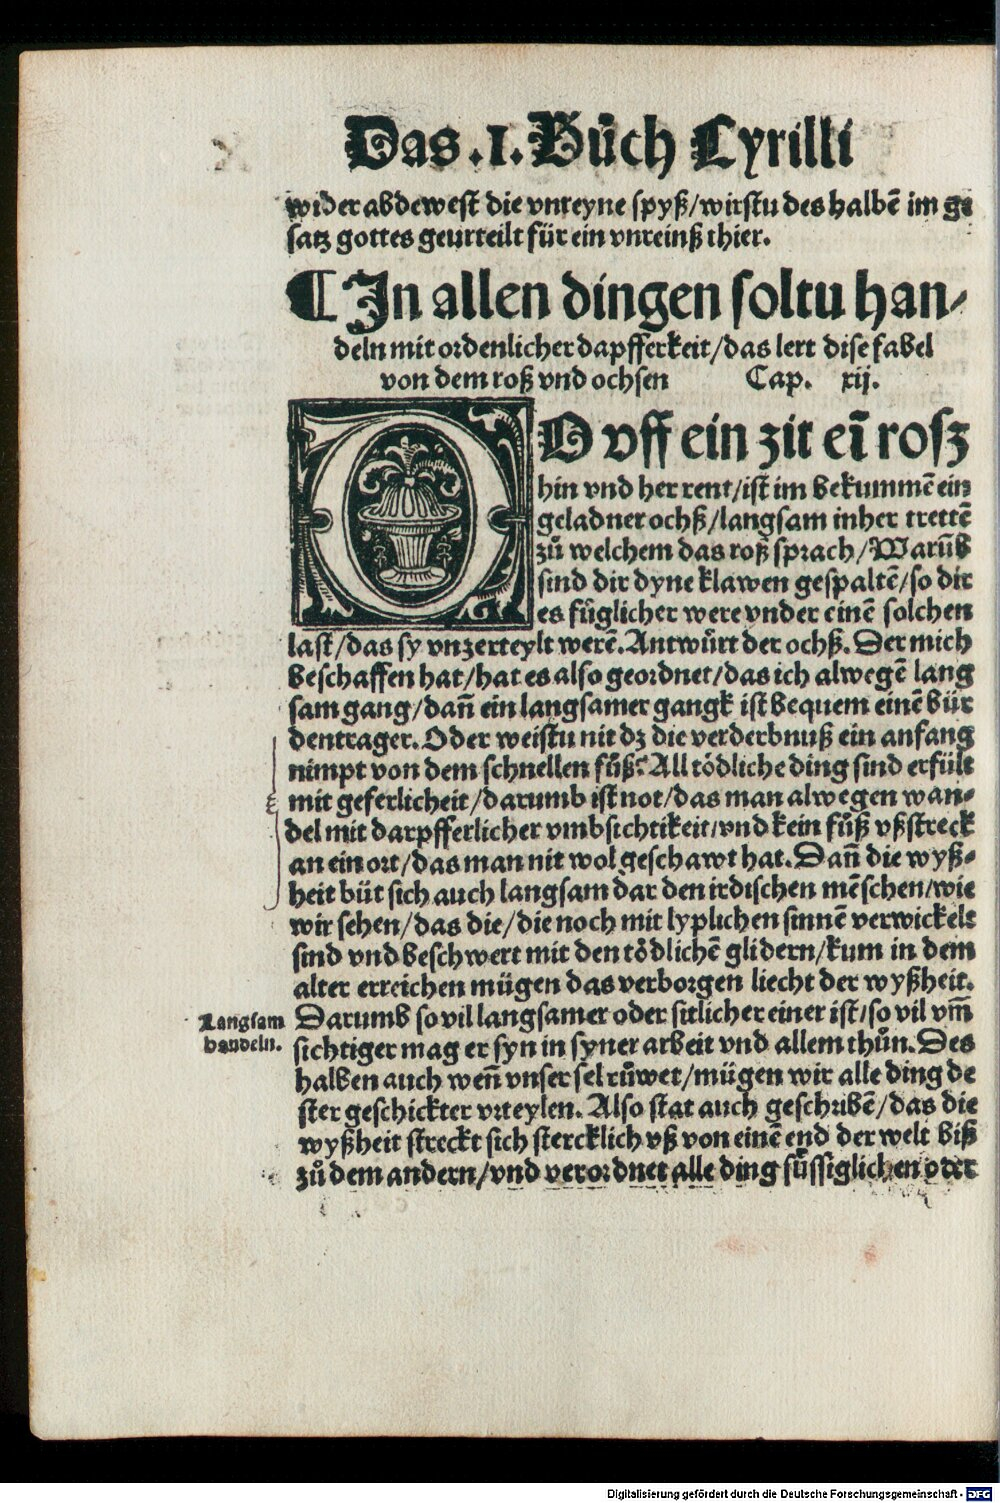 Das .I. Bůch Cyrilli
wider abdewest die vnreyne spyß/wirstu des halbē im ge
satz gottes geurteilt für ein vnreinß thier.
¶ In allen dingen soltu han-
deln mit ordenlicher dapfferkeit/das lert dise fabel
von dem roß vnd ochsen Cap. xij.
DO vff ein zit eī rosz
hin vnd her rent/ist im bekummē ein
geladner ochß/langsam inher trettē
zů welchem das roß sprach/Warūb
sind dir dyne klawen gespaltē/so dir
es fůglicher were vnder einē solchen
last/das sy vnzerteylt werē. Antwůrt der ochß. Der mich
beschaffen hat/hat es also geordnet/das ich alwegē lang
sam gang/dañ ein langsamer gangk ist bequem einē bür
dentrager. Oder weistu nit dz die verderbnuß ein anfang
nimpt von dem schnellen fůß? All tödliche ding sind erfült
mit geferlicheit/darumb ist not/das man alwegen wan-
del mit darpfferlicher vmbsichtikeit/vnd kein fůß vßstreck
an ein ort/das man nit wol geschawt hat. Dañ die wyß-
heit büt sich auch langsam dar den irdischen mēschen/wie
wir sehen/das die/die noch mit lyplichen sinnē verwickelt
sind vnd beschwert mit den tödlichē glidern/kum in dem
alter erreichen mügen das verborgen liecht der wyßheit.
Langsam
handeln.
Darumb so vil langsamer oder sitlicher einer ist/so vil vm̄
sichtiger mag er syn in syner arbeit vnd allem thůn. Des
halben auch weñ vnser sel růwet/mügen wir alle ding de
ster geschickter vrteylen. Also stat auch geschribē/das die
wyßheit streckt sich stercklich vß von einē end der welt biß
zů dem andern/vnd verordnet alle ding süssiglichen oder
Digitalisierung gefördert durch die Deutsche Forschungsgemeinschaft - DFG